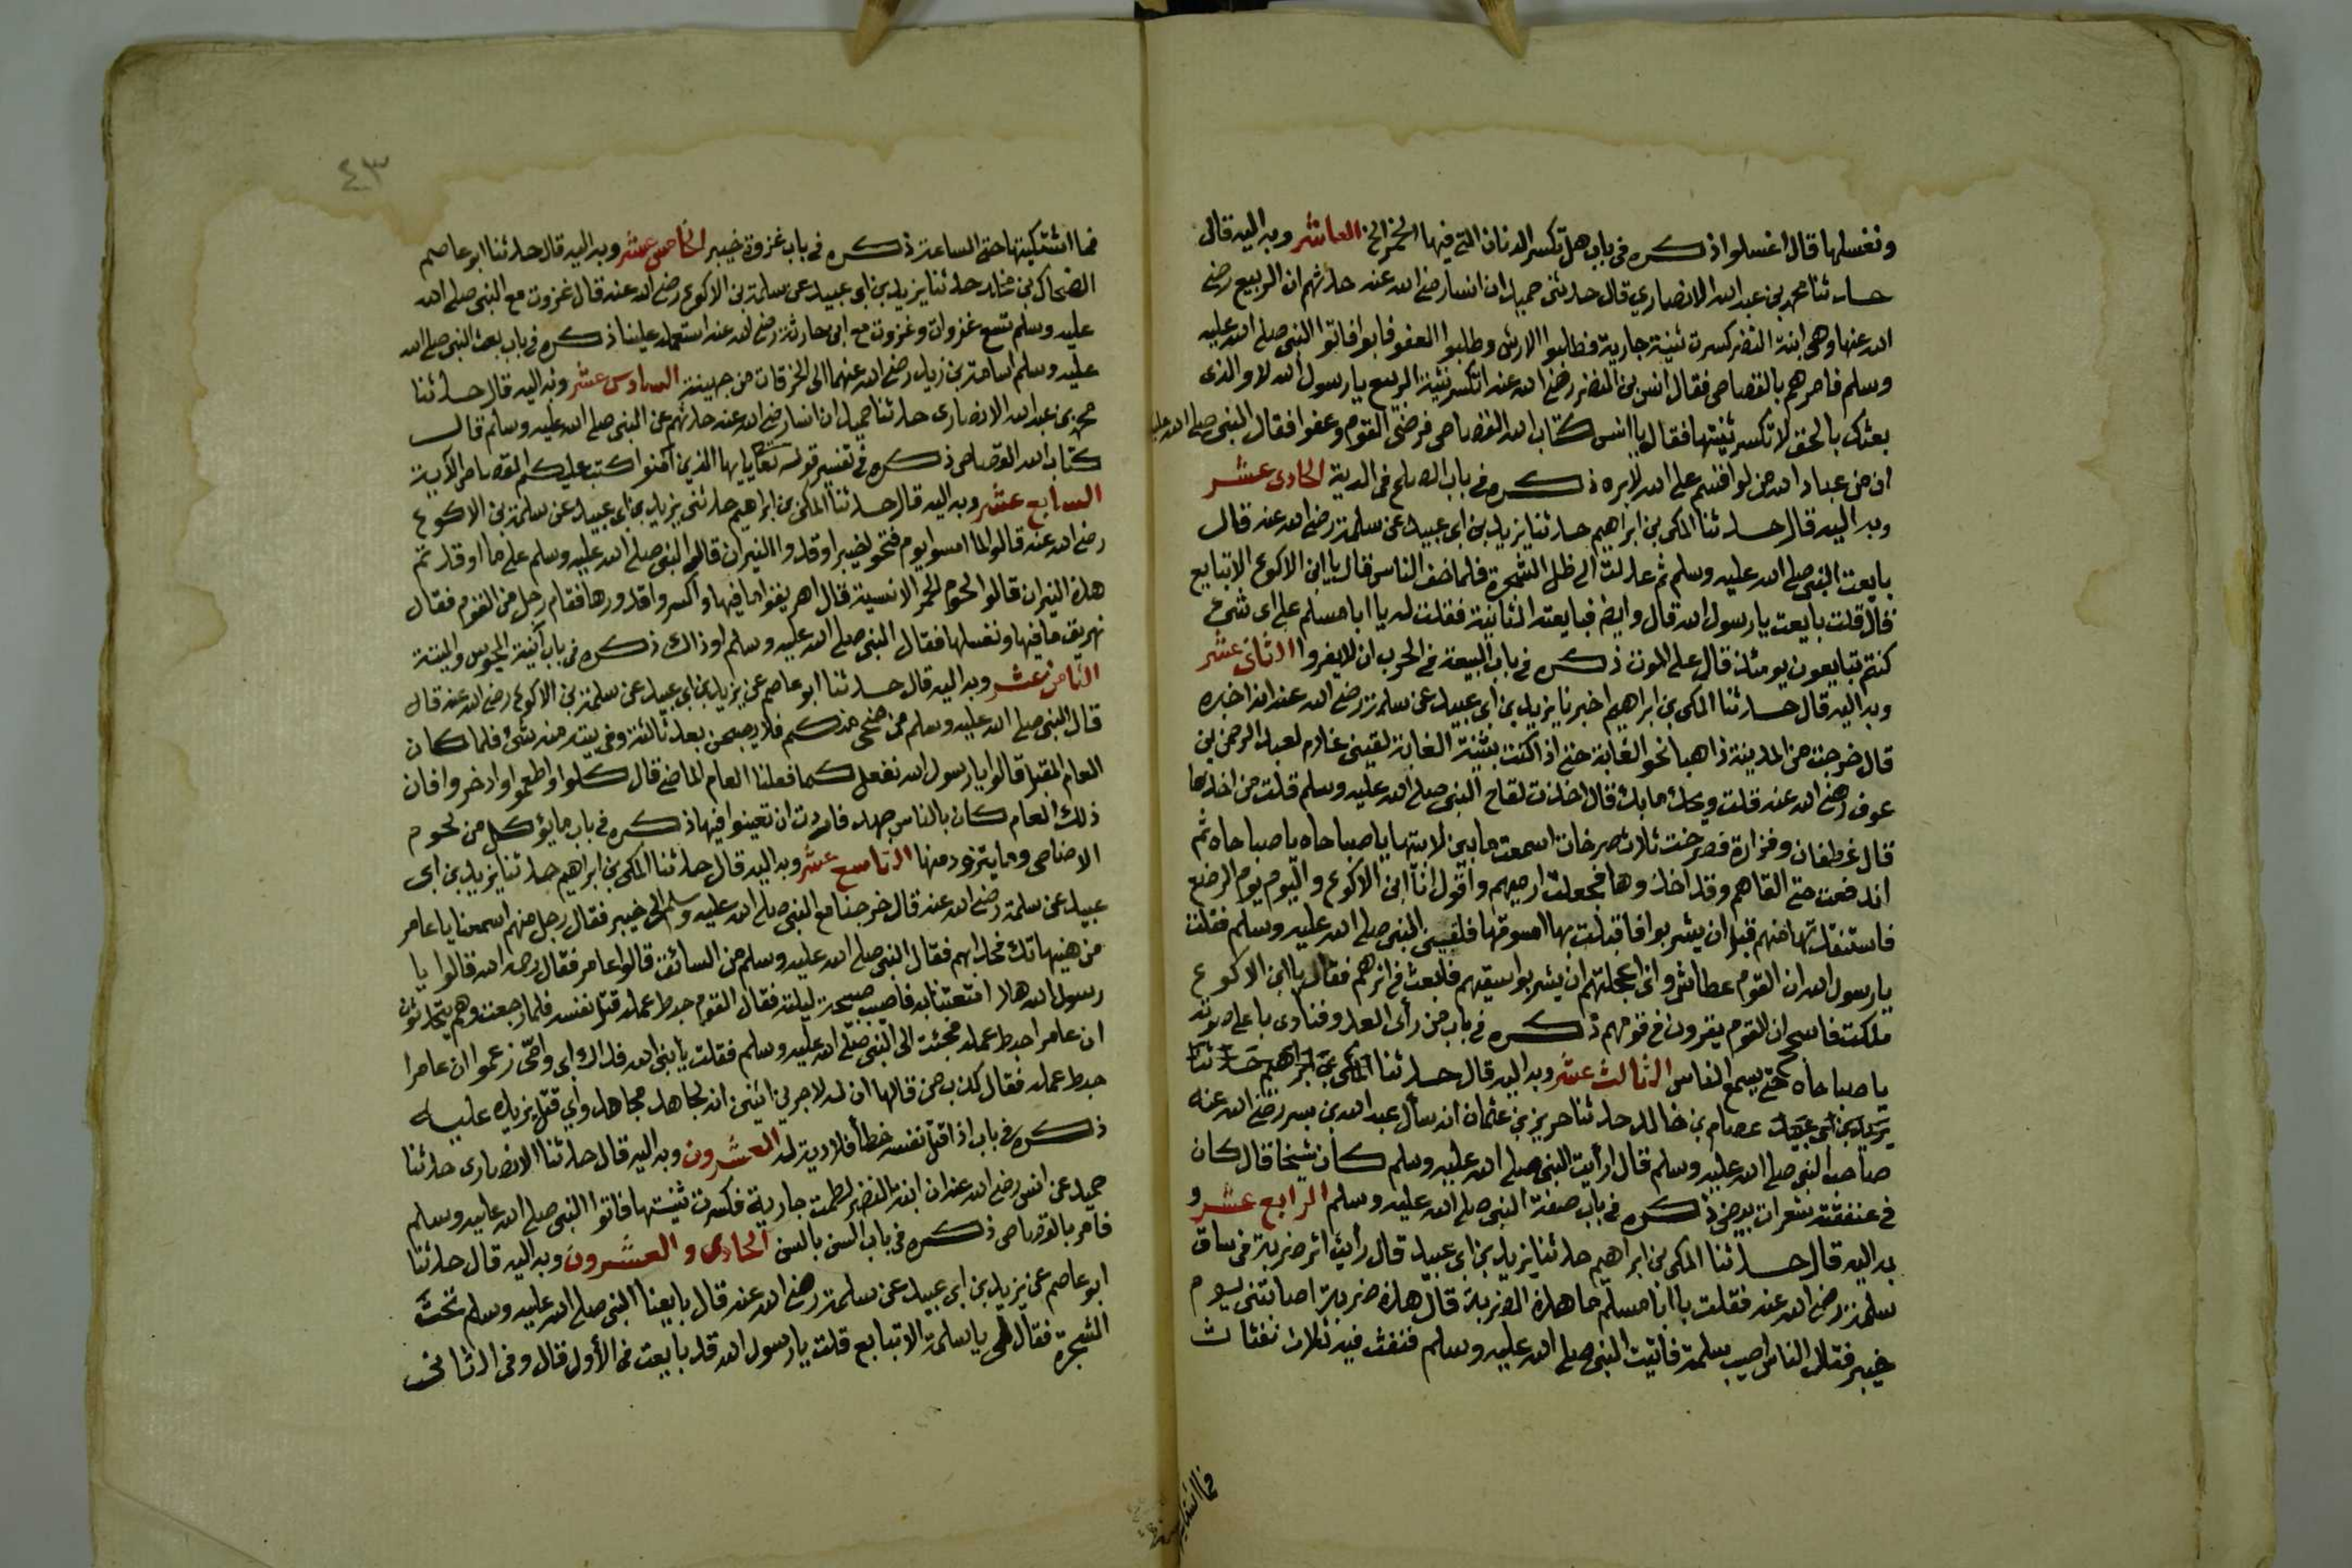 ونغسلها قال اغسلوا ذكره في باب هل تكسر الدنان التي فيها الخمر الخ العاشر وبه اليه قال
حدثنا محمد بن عبد الله الانصاري قال حدثني حميد ان انسا رضي الله عنه حدثهم ان الربيع رضي
الله عنها وهي ابنة النضر كسرت ثنية جارية فطلبوا الارش وطلبوا العفو فابوا فاتوا النبي صلى الله عليه
وسلم فامرهم بالقصاص فقال انس بن النضر رضي الله عنه اتكسر ثنية الربيع يا رسول الله لا والذي
بعثك بالحق لا تكسر ثنيتها فقال يا انس كتاب الله القصاص فرضي القوم وعفوا فقال النبي صلى الله عليه
ان من عباد الله من لو اقسم على الله لابره ذكره في باب الصلح في الدية الحادي عشر
وبه اليه قال حدثنا المكي بن ابراهيم حدثنا يزيد بن ابي عبيد عن سلمة رضي الله عنه قال
بايعت النبي صلى الله عليه وسلم ثم عدلت الى ظل الشجرة فلما خف الناس قال يا ابن الاكوع الا تبايع
قال قلت بايعت يا رسول الله قال وايضا فبايعته الثانية فقلت له يا ابا مسلم على اي شيء
كنتم تبايعون يومئذ قال على الموت ذكره في باب البيعة في الحرب ان لا يفروا الثاني عشر
وبه اليه قال حدثنا المكي بن ابراهيم اخبرنا يزيد بن ابي عبيد عن سلمة رضي الله عنه انه اخبره
قال خرجت من المدينة ذاهبا نحو الغابة حتى اذا كنت بثنية الغابة لقيني غلام لعبد الرحمن بن
عوف رضي الله عنه قلت ويحك ما بك قال اخذت لقاح النبي صلى الله عليه وسلم قلت من اخذها
قال غطفان وفزارة فصرخت ثلاث صرخات اسمعت ما بين لابتيها يا صباحاه يا صباحاه ثم
اندفعت حتى القاهم وقد اخذوها فجعلت ارميهم واقول انا ابن الاكوع واليوم يوم الرضع
فاستنقذتها منهم قبل ان يشربوا فاقبلت بها اسوقها فلقيني النبي صلى الله عليه وسلم فقلت
يا رسول الله ان القوم عطاش واني اعجلتهم ان يشربوا سقيهم فابعث في اثرهم فقال يا ابن الاكوع
ملكت فاسجح ان القوم يقرون في قومهم ذكره في باب من رأى العدو فنادى باعلى صوته
يا صباحاه حتى يسمع الناس الثالث عشر وبه اليه قال حدثنا المكي بن ابراهيم حدثنا
يزيد بن ابي عبيد عصام بن خالد حدثنا حريز بن عثمان انه سأل عبد الله بن بسر رضي الله عنه
صاحب النبي صلى الله عليه وسلم قال ارأيت النبي صلى الله عليه وسلم كان شيخا قال كان
في عنفقته شعرات بيض ذكره في باب صفة النبي صلى الله عليه وسلم الرابع عشر و
به اليه قال حدثنا المكي بن ابراهيم حدثنا يزيد بن ابي عبيد قال رأيت اثر ضربة في ساق
سلمة رضي الله عنه فقلت يا ابا مسلم ما هذه الضربة قال هذه ضربة اصابتني يوم
خيبر فقال الناس اصيب سلمة فاتيت النبي صلى الله عليه وسلم فنفث فيه ثلاث نفثات
٤٣
فما اشتكيتها حتى الساعة ذكره في باب غزوة خيبر الخامس عشر وبه اليه قال حدثنا ابو عاصم
الضحاك بن مخلد حدثنا يزيد بن ابي عبيد عن سلمة بن الاكوع رضي الله عنه قال غزوت مع النبي صلى الله
عليه وسلم تسع غزوات وغزوت مع ابن حارثة رضي الله عنه استعمله علينا ذكره في باب بعث النبي صلى الله
عليه وسلم اسامة بن زيد رضي الله عنهما الى الحرقات من جهينة السادس عشر وبه اليه قال حدثنا
محمد بن عبد الله الانصاري حدثنا حميد ان انسا رضي الله عنه حدثهم عن النبي صلى الله عليه وسلم قال
كتاب الله القصاص ذكره في تفسير قوله تعالى يايها الذين امنوا كتب عليكم القصاص الآية
السابع عشر وبه اليه قال حدثنا المكي بن ابراهيم حدثني يزيد بن ابي عبيد عن سلمة بن الاكوع
رضي الله عنه قال لما امسوا يوم فتحوا خيبر اوقدوا النيران قال النبي صلى الله عليه وسلم على ما اوقدتم
هذه النيران قالوا لحوم الحمر الانسية قال اهريقوا ما فيها واكسروا قدورها فقام رجل من القوم فقال
نهريق ما فيها ونغسلها فقال النبي صلى الله عليه وسلم او ذاك ذكره في باب آنية المجوس والميتة
الثامن عشر وبه اليه قال حدثنا ابو عاصم عن يزيد بن ابي عبيد عن سلمة بن الاكوع رضي الله عنه قال
قال النبي صلى الله عليه وسلم من ضحى منكم فلا يصبحن بعد ثالثة وفي بيته منه شئ فلما كان
العام المقبل قالوا يا رسول الله نفعل كما فعلنا العام الماضي قال كلوا واطعموا وادخروا فان
ذلك العام كان بالناس جهد فاردت ان تعينوا فيها ذكره في باب ما يؤكل من لحوم
الاضاحي وما يتزود منها التاسع عشر وبه اليه قال حدثنا المكي بن ابراهيم حدثنا يزيد بن ابي
عبيد عن سلمة رضي الله عنه قال خرجنا مع النبي صلى الله عليه وسلم الى خيبر فقال رجل منهم اسمعنا يا عامر
من هنيهاتك فحدا بهم فقال النبي صلى الله عليه وسلم من السائق قالوا عامر فقال رحمه الله قالوا يا
رسول الله هلا امتعتنا به فاصيب صبيحة ليلته فقال القوم حبط عمله قتل نفسه فلما رجعت وهم يتحدثون
ان عامرا حبط عمله فجئت الى النبي صلى الله عليه وسلم فقلت يا نبي الله فداك ابي وامي زعموا ان عامرا
حبط عمله فقال كذب من قالها ان له لاجرين اثنين انه لجاهد مجاهد واي قتل يزيده عليه
ذكره في باب اذا قتل نفسه خطأ فلا دية له العشرون وبه اليه قال حدثنا الانصاري حدثنا
حميد عن انس رضي الله عنه ان ابنة النضر لطمت جارية فكسرت ثنيتها فاتوا النبي صلى الله عليه وسلم
فامر بالقصاص ذكره في باب السن بالسن الحادي والعشرون وبه اليه قال حدثنا
ابو عاصم عن يزيد بن ابي عبيد عن سلمة رضي الله عنه قال بايعنا النبي صلى الله عليه وسلم تحت
الشجرة فقال لي يا سلمة الا تبايع قلت يا رسول الله قد بايعت في الأول قال وفي الثاني